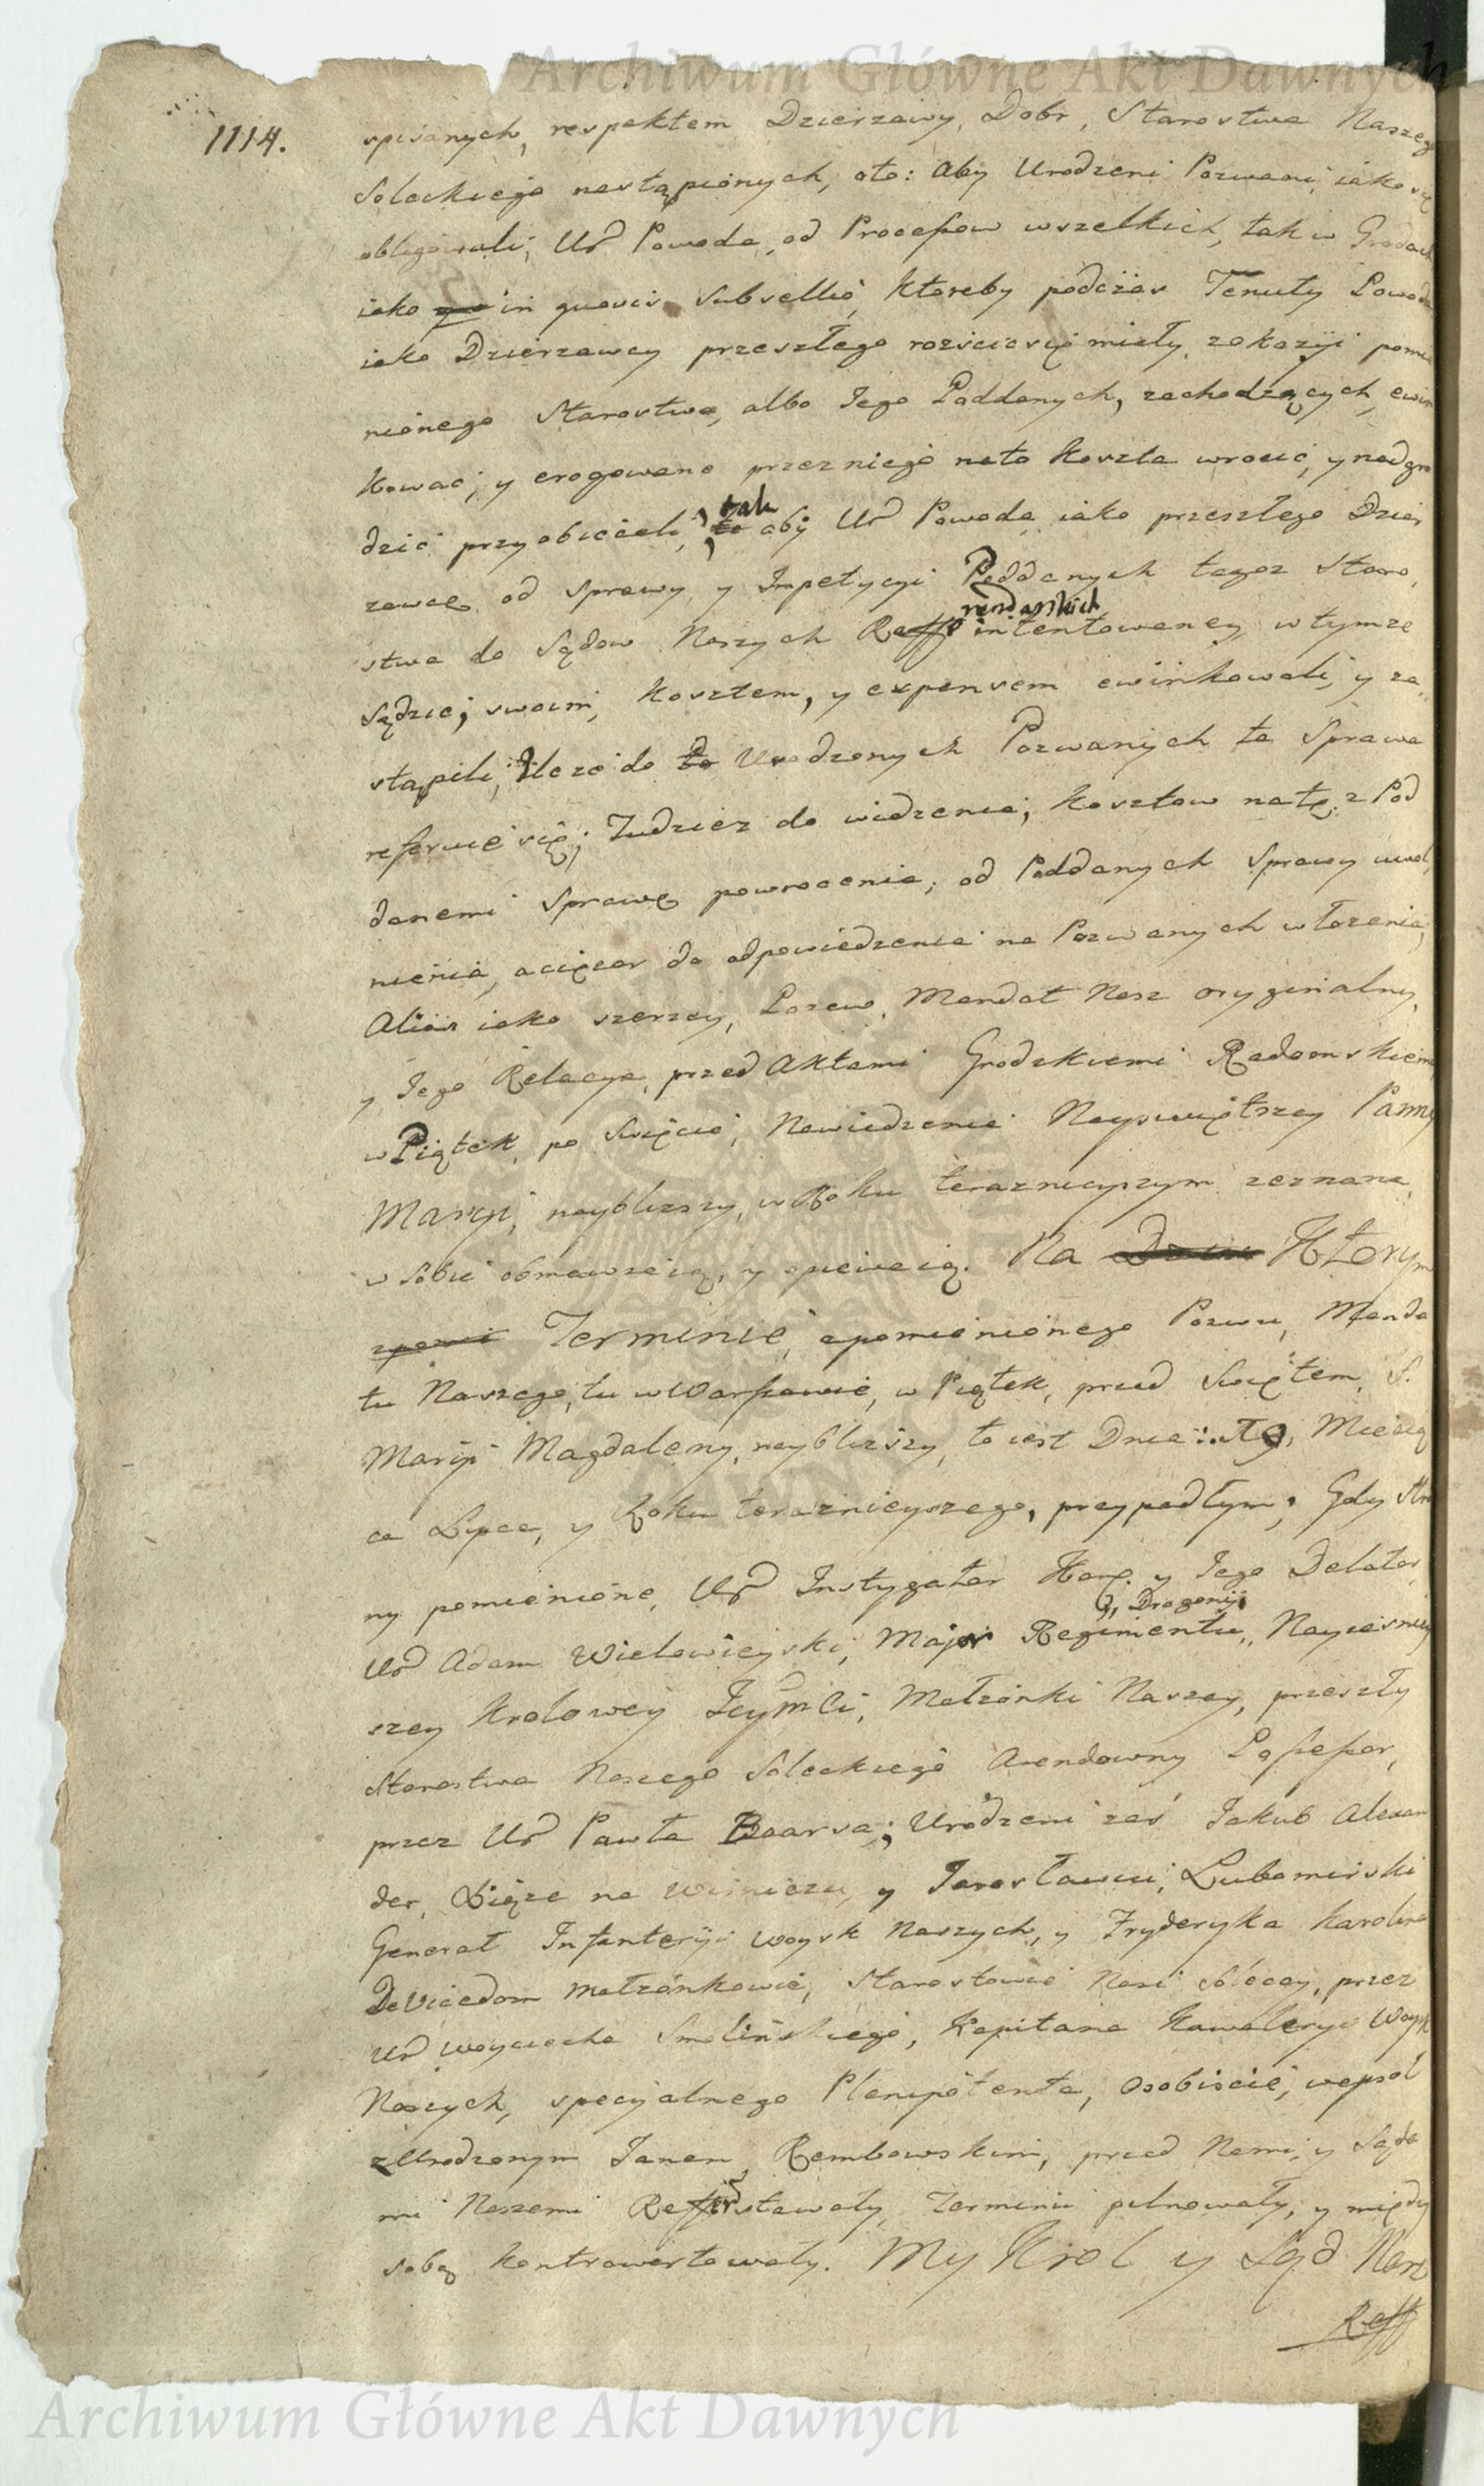 Archiwum Główne Akt Dawnych
1114.
spisanych, respektem Dzierzawy, Dobr, Starostwa Naszego
Soleckiego nastąpionych, oto: aby Urodzeni Pozwani, iako się
obligowali, Ur Powoda, od Processow wszelkich, tak w Grodach
iako in quovis Subsellio, ktoreby podczas Tenuty Powoda
iako Dzierzawcy przeszłego rościć się miały, z okazyi pomie
nionego Starostwa, albo Jego Poddanych, zachodzących, ewin
kować, y erogowane przez niego na to koszta wrocić, y nadgro
dzić przyobiecali, tak aby Ur Powoda iako przeszłego Dzier
zawcę, od Sprawy, y Impetycyi Poddanych tegoz Staro
stwa do Sądow Naszych Reffrendarskich intentowaney, w tymze
Sądzie, swoim, kosztem, y expensem ewinkowali, y za
stąpili, Ile ze do Urodzonych Pozwanych ta Sprawa
referuie się; Tudziez do widzenia, kosztow na tę z Pod
danemi Sprawę powrocenia, od Poddanych Sprawy uwol
nienia, a cięzar do odpowiedzenia na Pozwanych włozenia,
Alias iako szerzey, Pozew, Mandat Nasz oryginalny,
y Jego Relacya, przed Aktami Grodzkiemi Radomskiemi
w Piątek, po Swięcie, Nawiedzenia Nayswiętszey Panny
Maryi, naybliższy, w Roku teraznieyszym zeznana,
w Sobie obmawiaią, y opiewaią. Na Ktorym
Terminie, z pomienionego Pozwu, Manda
tu Naszego, tu w Warszawie, w Piątek, przed Swiętem, S.
Maryi Magdaleny, naybliższy, to iest Dnia: 19, Miesią
ca Lipca, y Roku teraznieyszego, przypadłym, Gdy Stro
ny pomienione, Ur Instygator Kor. y Jego Delator,
Ur Adam Wielowieyski, Major Regimentu, Dragonij Nayiasniey
szey Krolowey Jeymci, Małzonki Naszey, przeszły
Starostwa Naszego Soleckiego Arendowny Possessor,
przez Ur Pawła Baarsa; Urodzeni zaś Jakub Alexan
der, Xiąze na Wisniczu, y Jarosławiu, Lubomirski
Generał Infanteryi Woysk Naszych, y Fryderyka Karolina
De Vicedom Małzonkowie, Starostowie Nasi Soleccy, przez
Ur Woyciecha Smolińskiego, Kapitana Kawaleryi Woysk
Naszych, specyalnego Plenipotenta, Osobiscie, wespoł
z Urodzonym Janem Rembowskim, przed Nami, y Sąda
mi Naszemi Reffer stawały, Terminu pilnowały, y między
sobą kontrowertowały. My Krol y Sąd Nasz
Reff
Archiwum Główne Akt Dawnych